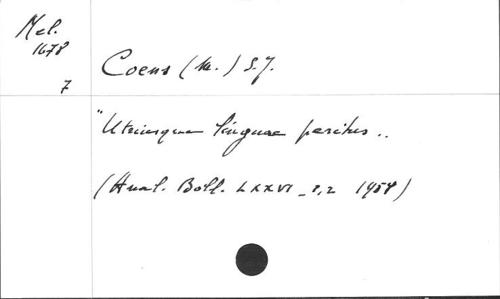 Mel.
1678
7
Coens (M.) S.J.
"Utriusque linguae peritus..
(Anal. Boll. LXXVI_1,2 1958)